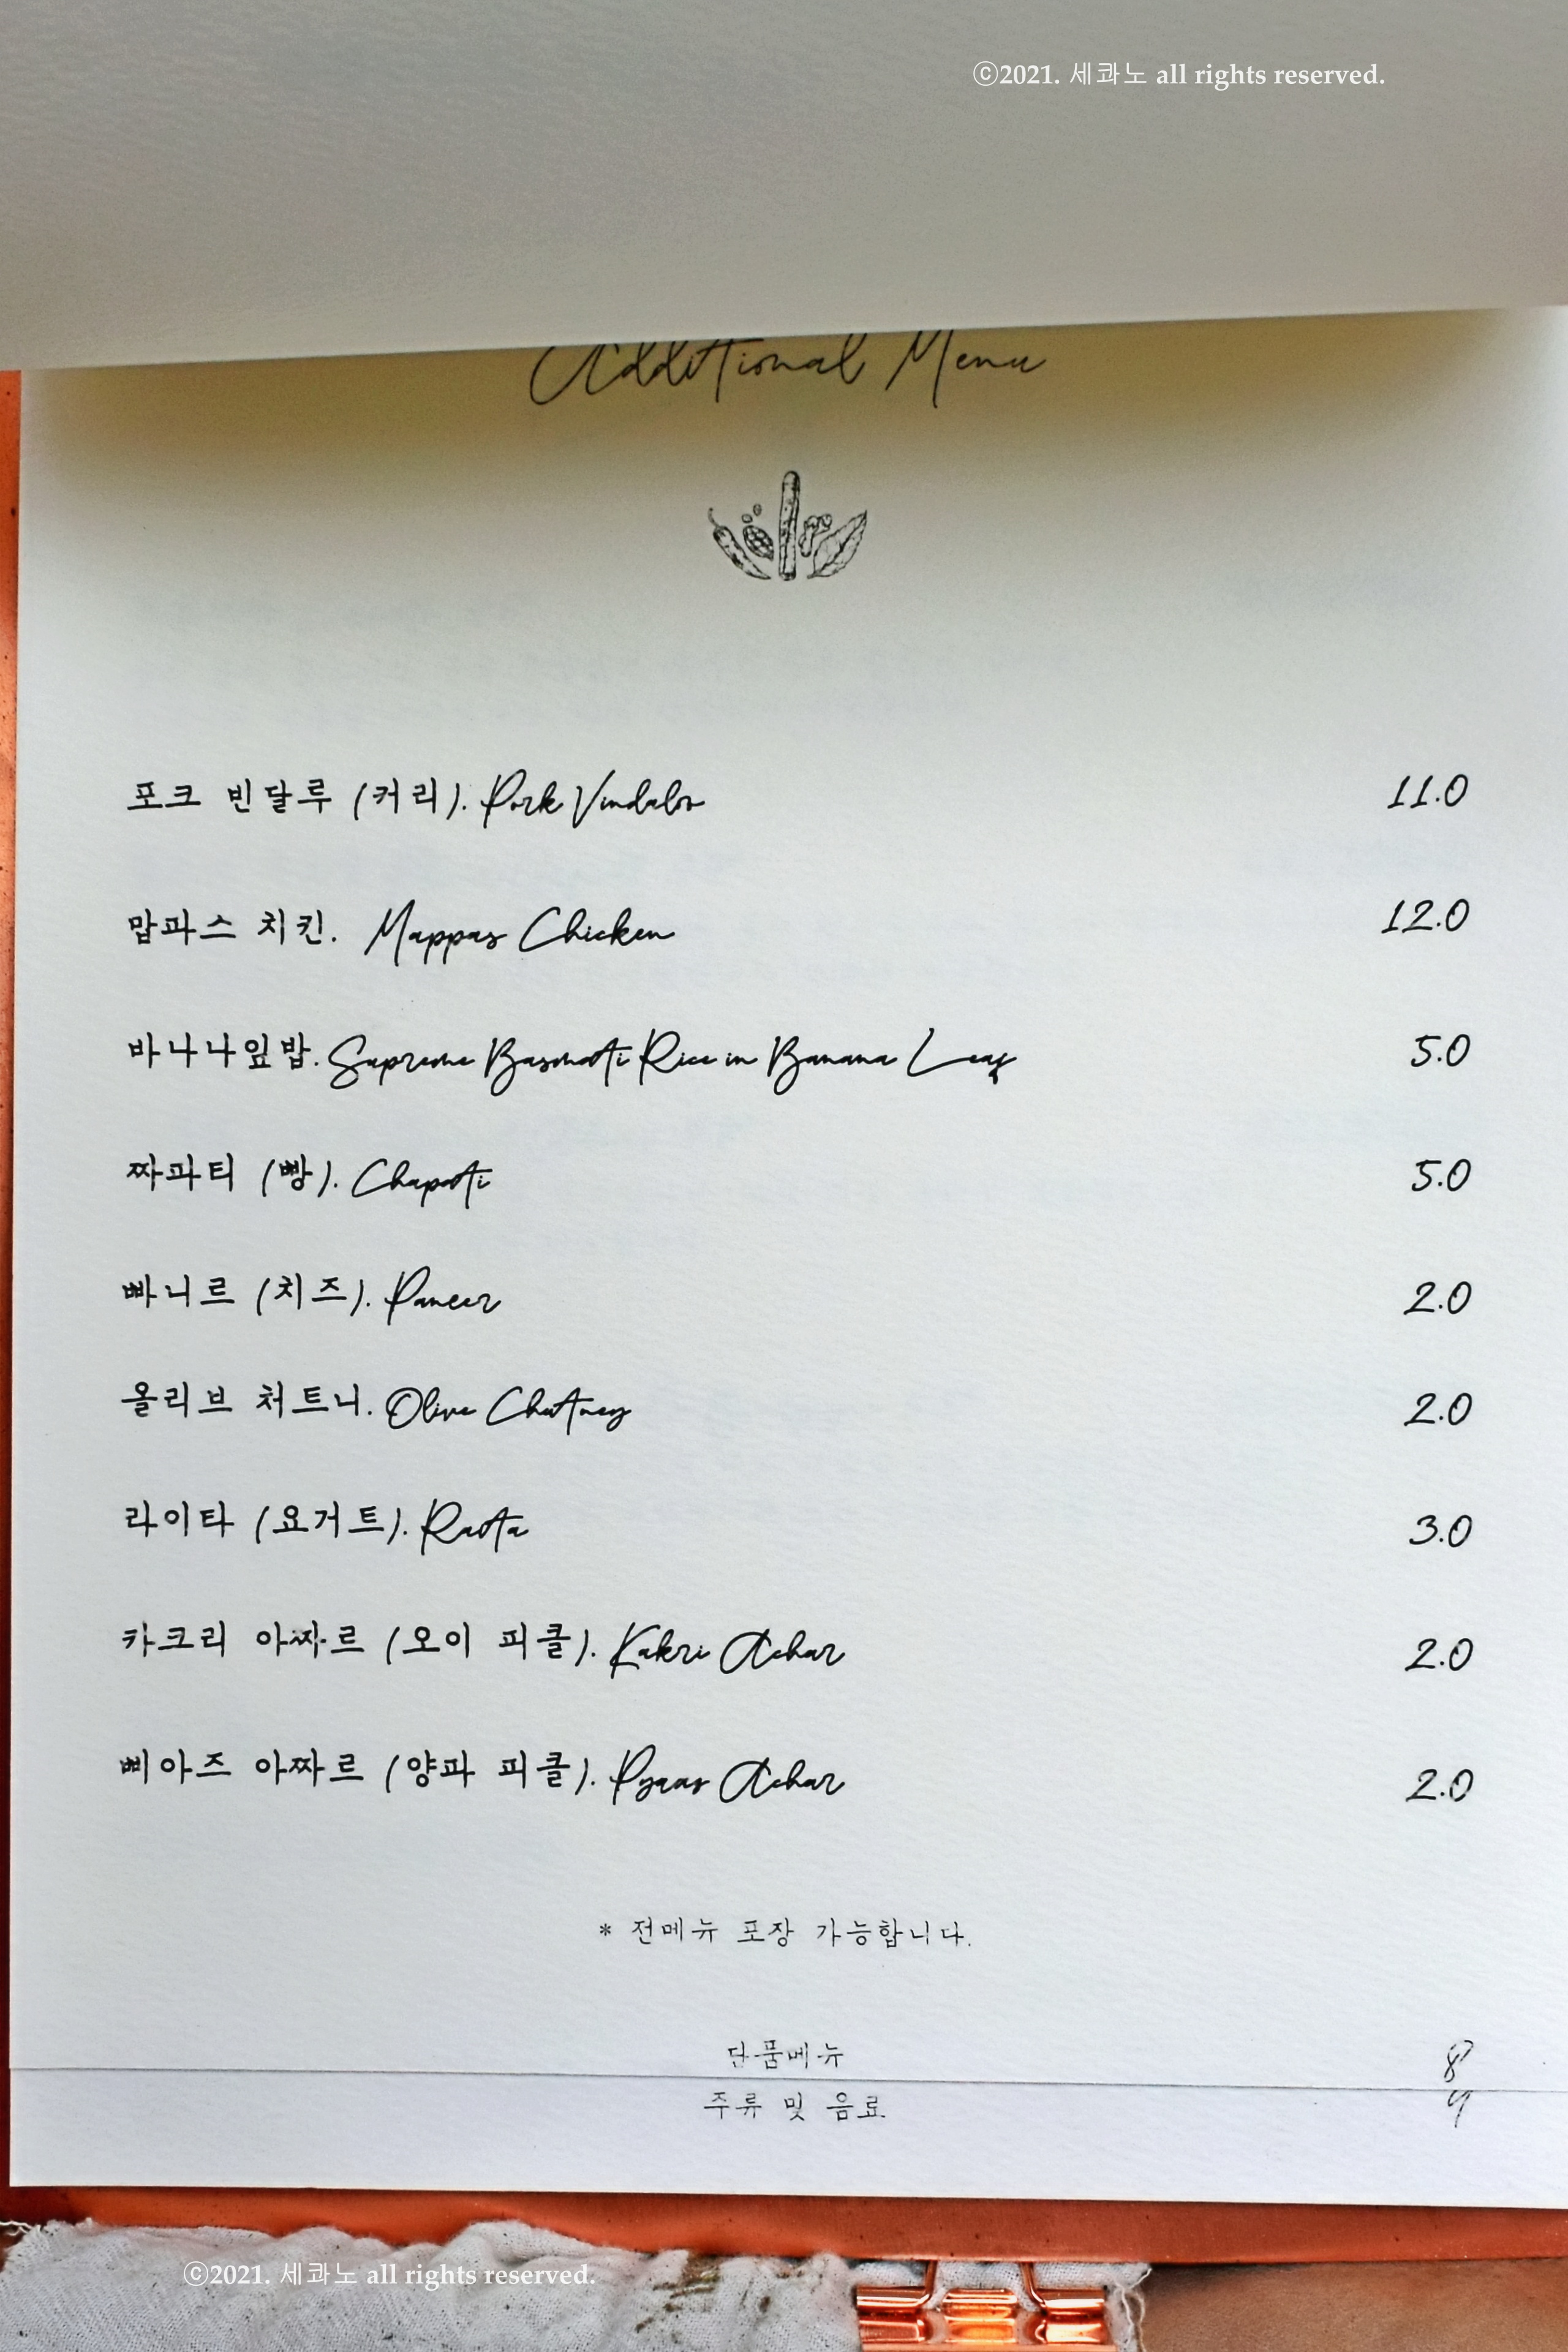 ⓒ2021. 세콰노 all rights reserved.
Additional Menu
포크 빈달루 (커리). Pork Vindaloo 11.0
맙파스 치킨. Mappas Chicken 12.0
바나나잎밥. Supreme Basmati Rice in Banana Leaf 5.0
짜파티 (빵). Chapati 5.0
빠니르 (치즈). Paneer 2.0
올리브 처트니. Olive Chutney 2.0
라이타 (요거트). Raita 3.0
카크리 아짜르 (오이 피클). Kakri Achar 2.0
삐아즈 아짜르 (양파 피클). Pyaas Achar 2.0
* 전메뉴 포장 가능합니다.
단품메뉴 8
주류 및 음료 9
ⓒ2021. 세콰노 all rights reserved.